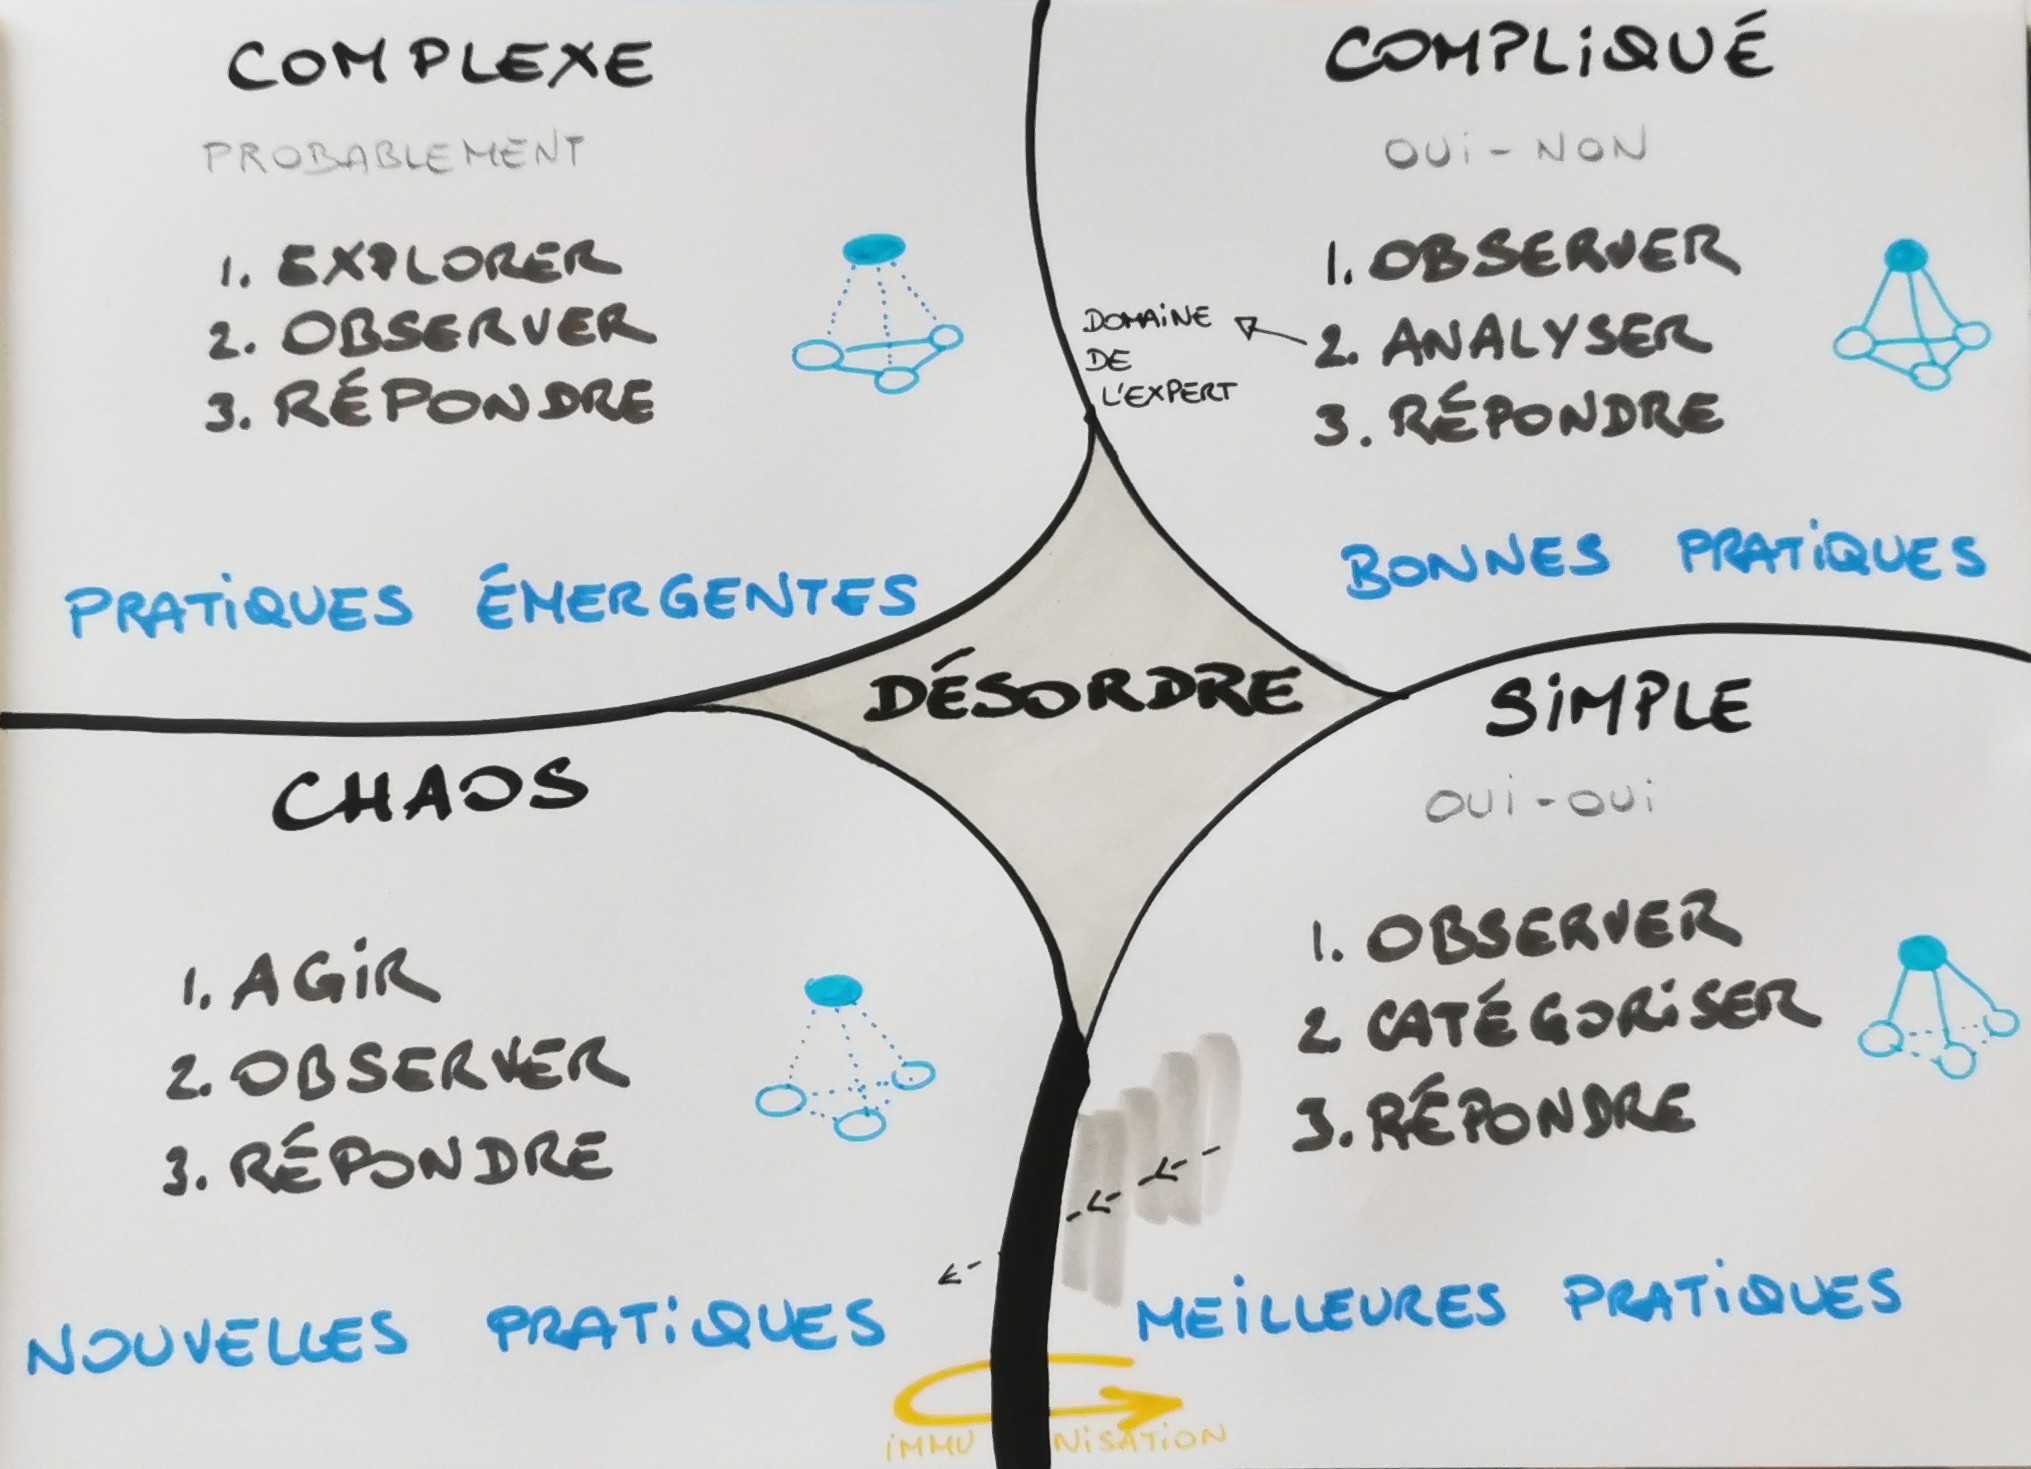 COMPLEXE
PROBABLEMENT
1. EXPLORER
2. OBSERVER
3. RÉPONDRE
PRATIQUES ÉMERGENTES
COMPLIQUÉ
OUI - NON
1. OBSERVER
2. ANALYSER
3. RÉPONDRE
DOMAINE
DE
L'EXPERT
BONNES PRATIQUES
DÉSORDRE
CHAOS
1. AGIR
2. OBSERVER
3. RÉPONDRE
NOUVELLES PRATIQUES
SIMPLE
OUI - OUI
1. OBSERVER
2. CATÉGORISER
3. RÉPONDRE
MEILLEURES PRATIQUES
IMMUNISATION